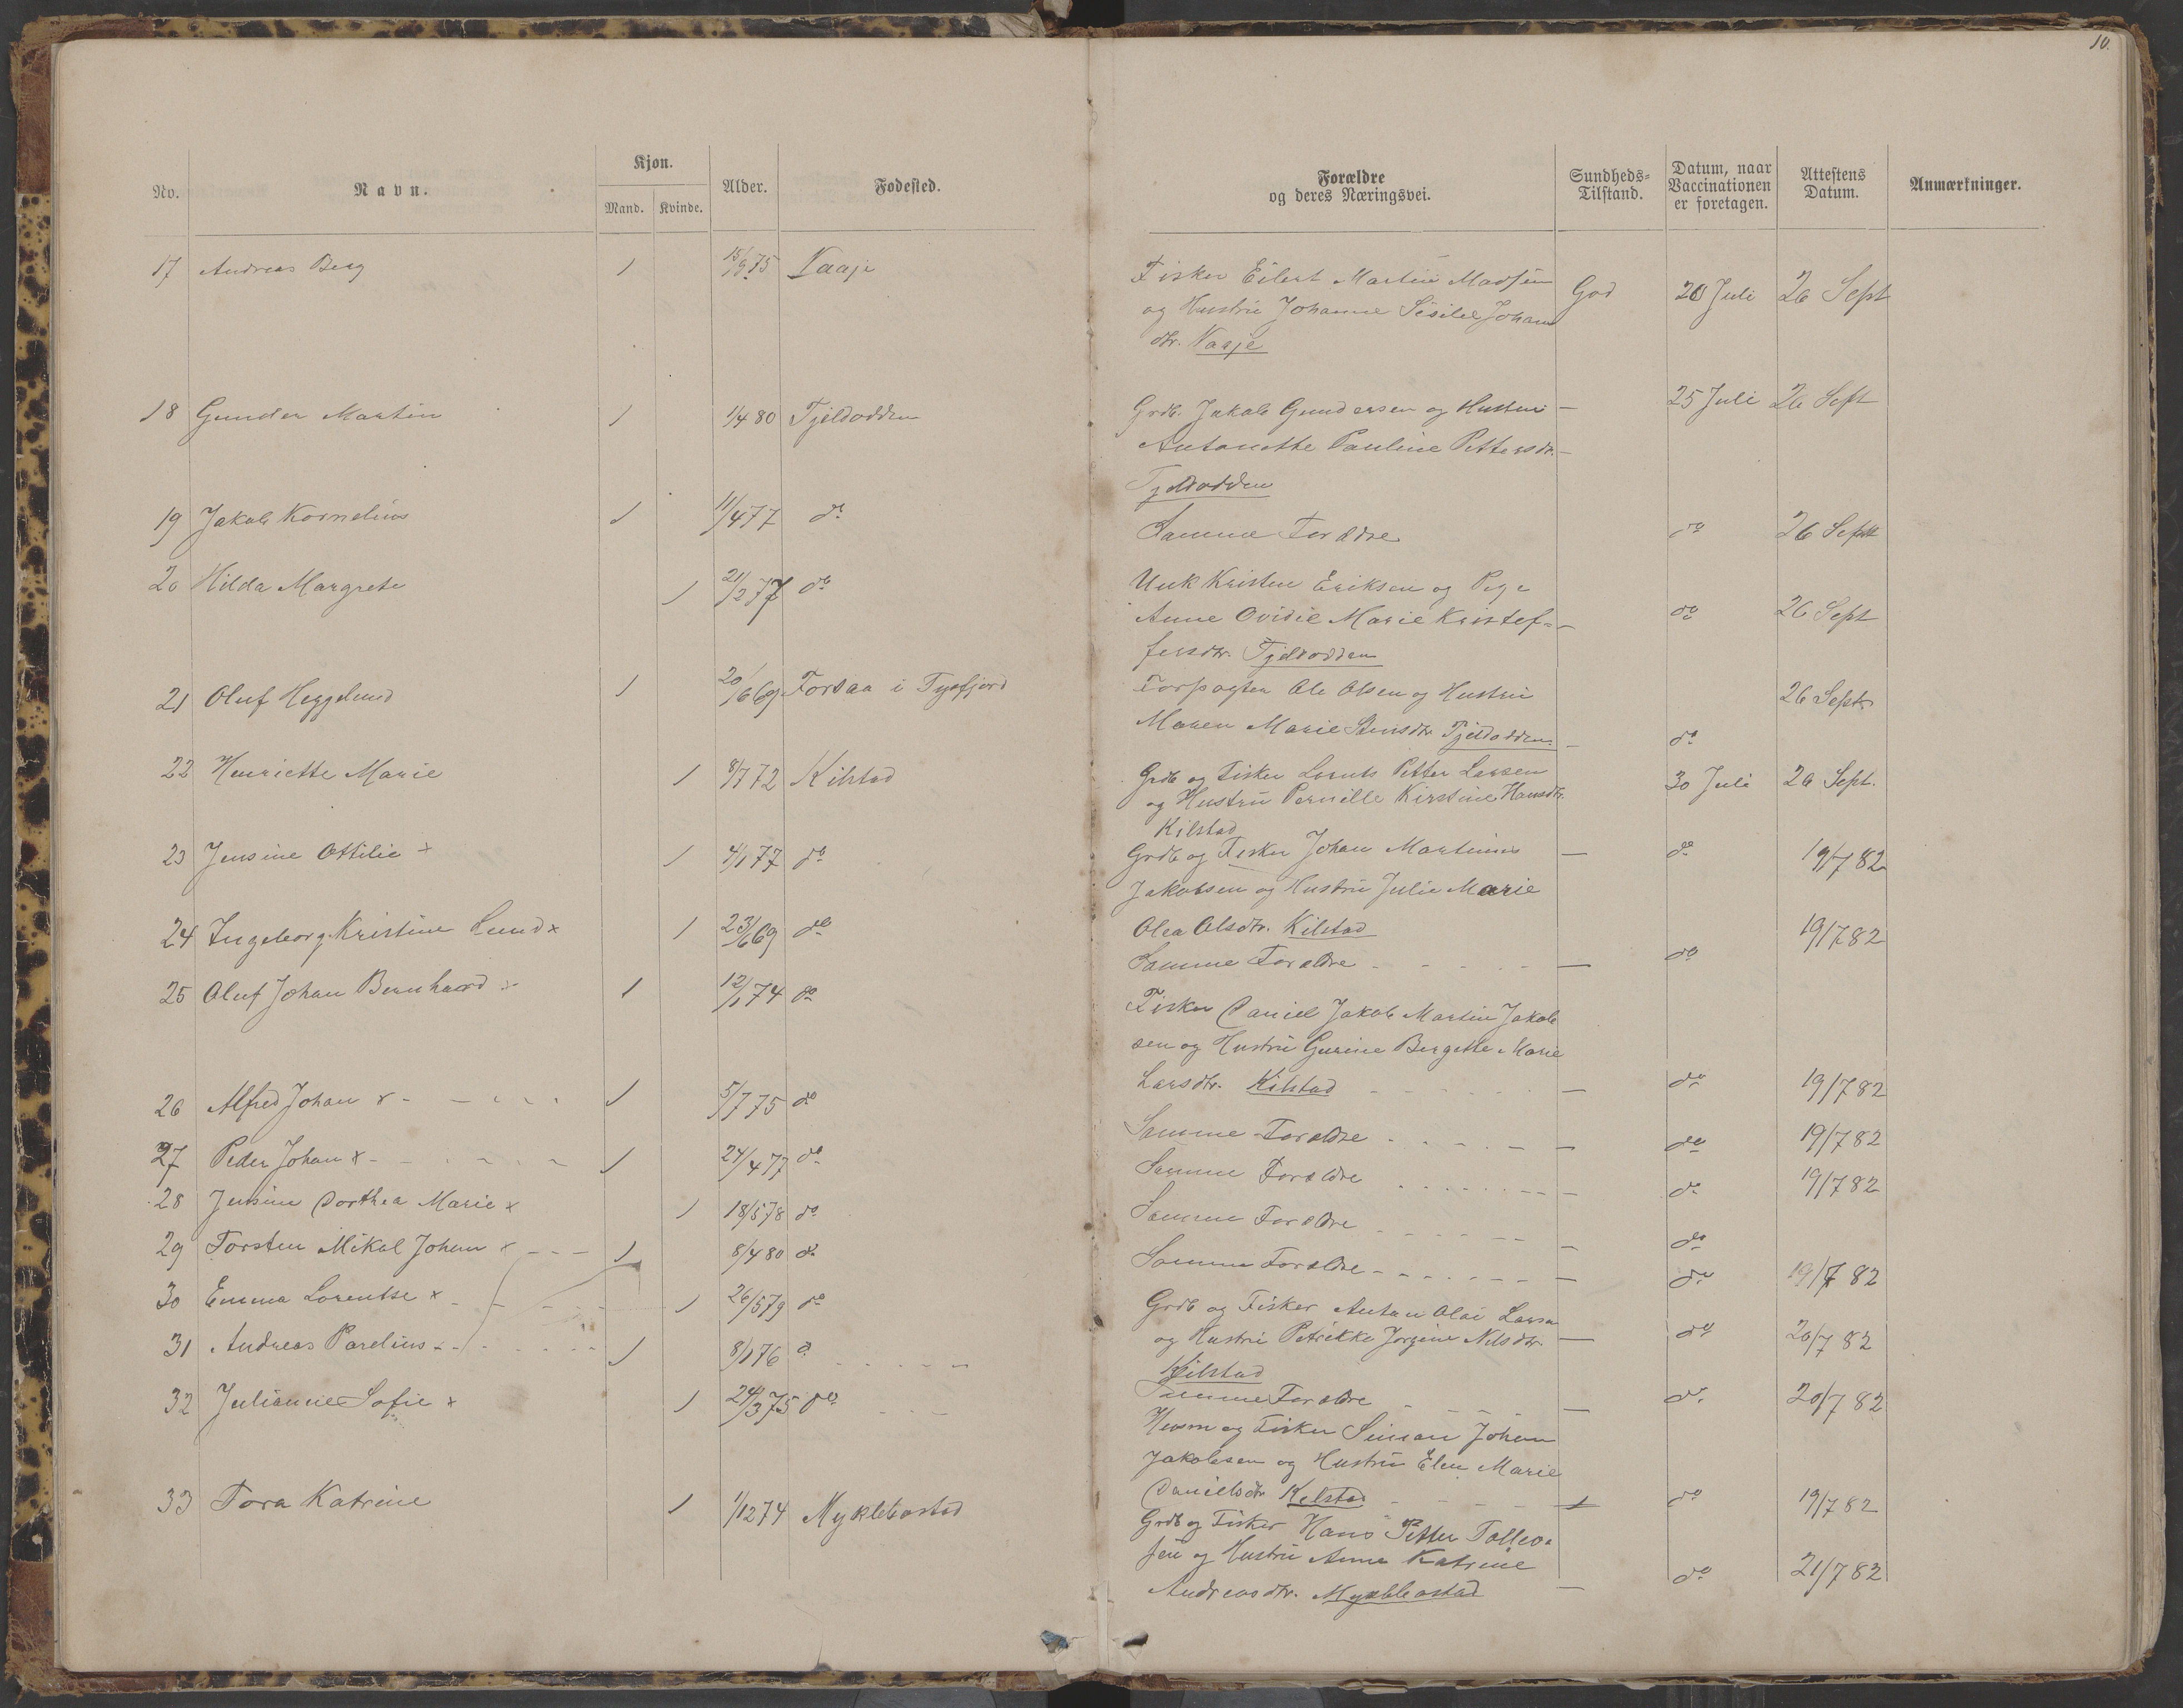 10.
No.
Navn.
Kjøn.
Mand. Kvinde.
Alder.
Fødested.
Forældre
og deres Næringsvei.
Sundheds-
Tilstand.
Datum, naar
Vaccinationen
er foretagen.
Attestens
Datum.
Anmærkninger.
17 Andreas Berg 1 15/9 75 Vaaje
Fisker Eilert Martin Madsen
og Hustru Johanne Sisilie Johans
dtr. Vaaje
God 20 Juli 26 Sept
18 Gunder Martin 1 1/4 80 Tjeldodden
Grdb. Jakob Gundersen og Hustru — 25 Juli 26 Sept
Antonette Pauline Pettersdr. —
Tjeldodden
19 Jakob Kornelius 1 11/4 77 do
Samme Forældre do 26 Sept
20 Hilda Margrete 1 21/2 77 do
Unk Kristen Eriksen og Pige
Anne Ovidie Marie Kristof- — do 26 Sept
fersdtr. Tjeldodden
21 Oluf Heggelund 1 20/6 69 Forsaa i Tysfjord
Forpagter Ole Olsen og Hustru 26 Sept
Maren Marie Jensdtr Tjeldodden. — do
22 Henriette Marie 1 8/7 72 Kilstad
Grdb og Fisker Lornts Petter Larsen 30 Juli 26 Sept.
og Hustru Pernille Kirstine Hansdtr.
Kilstad
23 Jensine Ottilie x 1 4/1 77 do
Grdb og Fisker Johan Martinus — do 19/7 82
Jakobsen og Hustru Julie Marie
Olea Olsdtr. Kilstad
24 Ingeborg Kristine Lund x 1 23/6 69 do
Samme Forældre — do 19/7 82
25 Oluf Johan Bernhard x 1 12/1 74 do
Fisker Daniel Jakob Martin Jakob
sen og Hustru Gurine Bergette Marie
Larsdtr. Kilstad — do 19/7 82
26 Alfred Johan x 1 5/7 75 do
Samme Forældre — do 19/7 82
27 Peder Johan x 1 24/4 77 do
Samme Forældre — do 19/7 82
28 Jensine Dorthea Marie x 1 18/5 78 do
Samme Forældre — do
29 Torsten Mikal Johan x 1 8/4 80 do
Samme Forældre — do 19/7 82
30 Emma Lorentse x 1 26/5 79 do
Grdb og Fisker Anton Olai Larsen
og Hustru Petrikke Jorgine Nilsdtr — do 20/7 82
Kilstad
31 Andreas Parelius 1 8/1 76 do
Samme Forældre — do 20/7 82
32 Julianne Sofie x 1 24/3 75 do
Husm og Fisker Simon Johan
Jakobsen og Hustru Elen Marie
Danielsdtr Kilstad — do 19/7 82
33 Tora Katrine 1 1/12 74 Myklebostad
Grdb og Fisker Hans Petter Tollev-
sen og Hustru Anne Katrine
Andreasdtr. Myklebostad — do 21/7 82